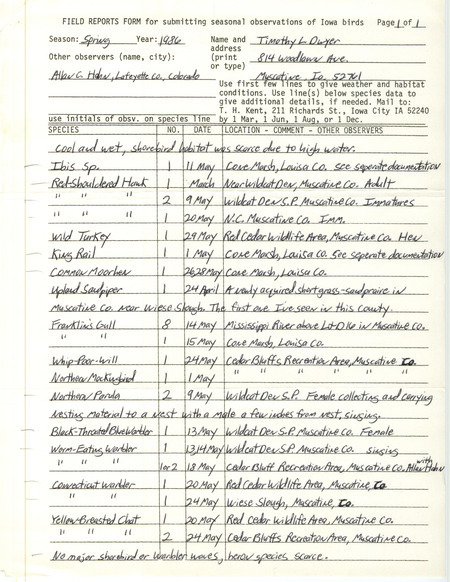 FIELD REPORTS FORM for submitting seasonal observations of Iowa birds Page 1 of 1
Season: Spring Year: 1986 Name and address (print or type) Timothy L. Dwyer
814 Woodlawn Ave.
Muscatine, Io. 52761
Other observers (name, city):
Allan C. Hahn, Lafayette Co., Colorado
Use first few lines to give weather and habitat
conditions. Use line(s) below species data to
give additional details, if needed. Mail to:
T. H. Kent, 211 Richards St., Iowa City IA 52240
use initials of obsv. on species line by 1 Mar, 1 Jun, 1 Aug, or 1 Dec.
SPECIES NO. DATE LOCATION - COMMENT - OTHER OBSERVERS
Cool and wet, shorebird habitat was scarce due to high water.
Ibis Sp. 1 11 May Cone Marsh, Louisa Co. see seperate documentation
Red-Shouldered Hawk 1 March Near Wildcat Den, Muscatine Co. Adult
" " " 2 9 May Wildcat Den S.P. Muscatine Co. Immatures
" " " 1 20 May N.C. Muscatine Co. Imm.
Wild Turkey 1 29 May Red Cedar Wildlife Area, Muscatine Co. Hen
King Rail 1 1 May Cone Marsh, Louisa Co. see seperate documentation
Common Moorhen 1 26,28 May Cone Marsh, Louisa Co.
Upland Sandpiper 1 24 April A newly acquired short grass-sand praire in
Muscatine Co. near Wiese Slough. The first one I've seen in this county.
Franklin's Gull 8 14 May Mississippi River above L+D 16 in Muscatine Co.
" " 1 15 May Cone Marsh, Louisa Co.
Whip-Poor-Will 1 24 May Cedar Bluffs Recreation Area, Muscatine Co.
Northern Mockingbird 1 1 May " " " " "
Northern Parula 2 9 May Wildcat Den S.P. Female collecting and carrying
nesting material to a nest with a male a few inches from nest, singing.
Black-Throated Blue Warbler 1 13 May Wildcat Den S.P. Muscatine Co. Female
Worm-Eating Warbler 1 13,14 May Wildcat Den S.P. Muscatine Co. singing
" " " 1 or 2 18 May Cedar Bluff Recreation Area, Muscatine Co. with Allan Hahn
Connecticut Warbler 1 20 May Red Cedar Wildlife Area, Muscatine, Co.
" " 1 24 May Wiese Slough, Muscatine, Co.
Yellow-Breasted Chat 1 20 May Red Cedar Wildlife Area, Muscatine Co.
" " " 2 24 May Cedar Bluffs Recreation Area, Muscatine Co.
No major shorebird or warbler waves, heron species scarce.